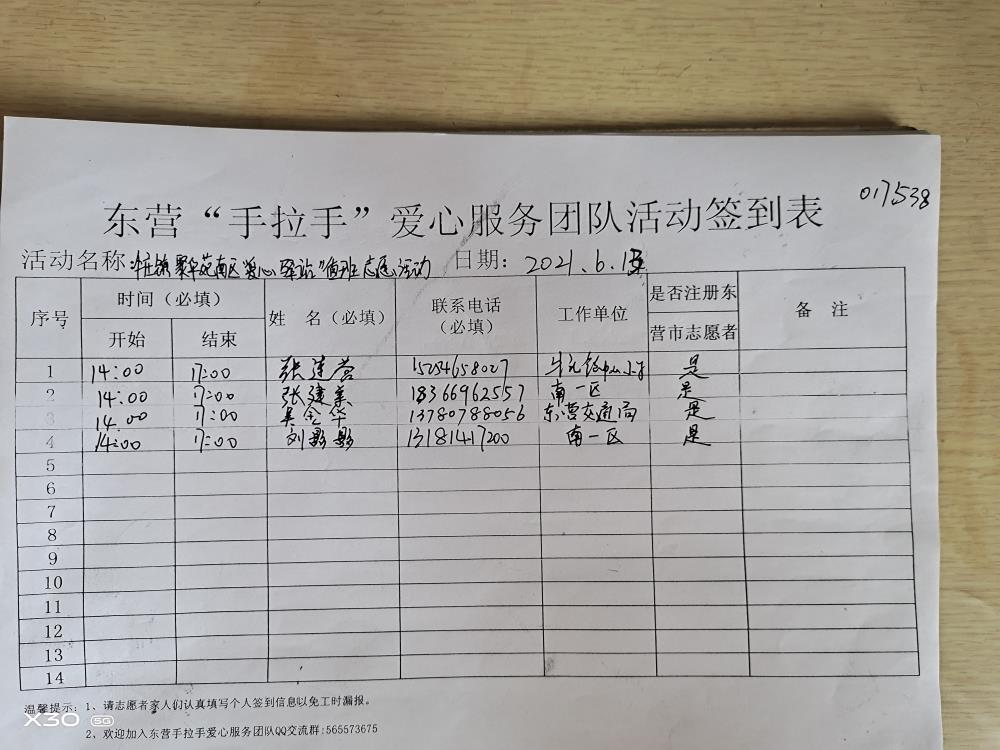 017538
东营“手拉手”爱心服务团队活动签到表
活动名称: 聚华苑南区“爱心驿站”值班志愿活动 日期: 2021.6.15
序号 时间（必填） 姓 名（必填） 联系电话（必填） 工作单位 是否注册东营市志愿者 备 注
开始 结束
1 14:00 17:00 张建营 15254658027 是
2 14:00 17:00 张建美 18366962557 南一区 是
3 14:00 17:00 吴金华 13780788056 东营交通局 是
4 14:00 17:00 刘影影 13181417200 南一区 是
5
6
7
8
9
10
11
12
13
14
温馨提示: 1、请志愿者家人们认真填写个人签到信息以免工时漏报。
2、欢迎加入东营手拉手爱心服务团队QQ交流群:565573675
X30 5G